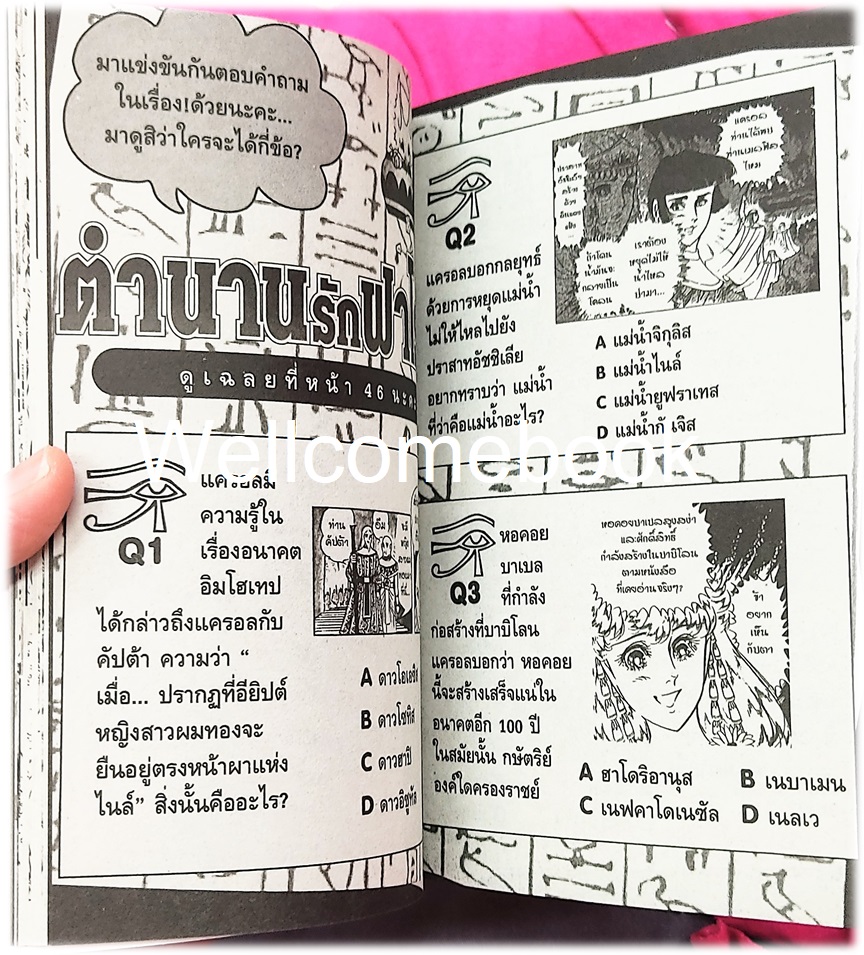 มาแข่งขันกันตอบคำถาม
ในเรื่อง!ด้วยนะคะ...
มาดูสิว่าใครจะได้กี่ข้อ?
ตำนานรักฟา
ดูเฉลยที่หน้า 46 นะ
Q1
แครอลมี
ความรู้ใน
เรื่องอนาคต
อิมโฮเทป
ได้กล่าวถึงแครอลกับ
คัปต้า ความว่า “
เมื่อ... ปรากฏที่อียิปต์
หญิงสาวผมทองจะ
ยืนอยู่ตรงหน้าผาแห่ง
ไนล์” สิ่งนั้นคืออะไร?
ท่าน
คัปต้า
อิม
A ดาวโอเอซิส
B ดาวโซทิส
C ดาวฮาปี
D ดาวอิชูทัล
Q2
แครอลบอกกลยุทธ์
ด้วยการหยุดแม่น้ำ
ไม่ให้ไหลไปยัง
ปราสาทอัซซิเลีย
อยากทราบว่า แม่น้ำ
ที่ว่าคือแม่น้ำอะไร?
แครอล
ท่านได้พบ
ท่านเมมฟิส
ไหม
เราต้อง
หยุดไม่ให้
น้ำไหล
ผ่านมา...
ถ้าโดน
น้ำมันจะ
กลายเป็น
โคลน
A แม่น้ำจิกุลิส
B แม่น้ำไนล์
C แม่น้ำยูฟราเทส
D แม่น้ำกั เจิส
Q3
หอคอย
บาเบล
ที่กำลัง
ก่อสร้างที่บาบิโลน
แครอลบอกว่า หอคอย
นี้จะสร้างเสร็จแน่ใน
อนาคตอีก 100 ปี
ในสมัยนั้น กษัตริย์
องค์ใดครองราชย์
หอคอยบาเบลสูงสง่า
และศักดิ์สิทธิ์
กำลังสร้างในบาบิโลน
ตามหนังสือ
ที่เคยอ่านจริงๆ?
ข้า
อยาก
เห็น
กับตา
A ฮาโดริอานุส
B เนบาเมน
C เนฟคาโดเนซัล
D เนลเว
Wellcomebook